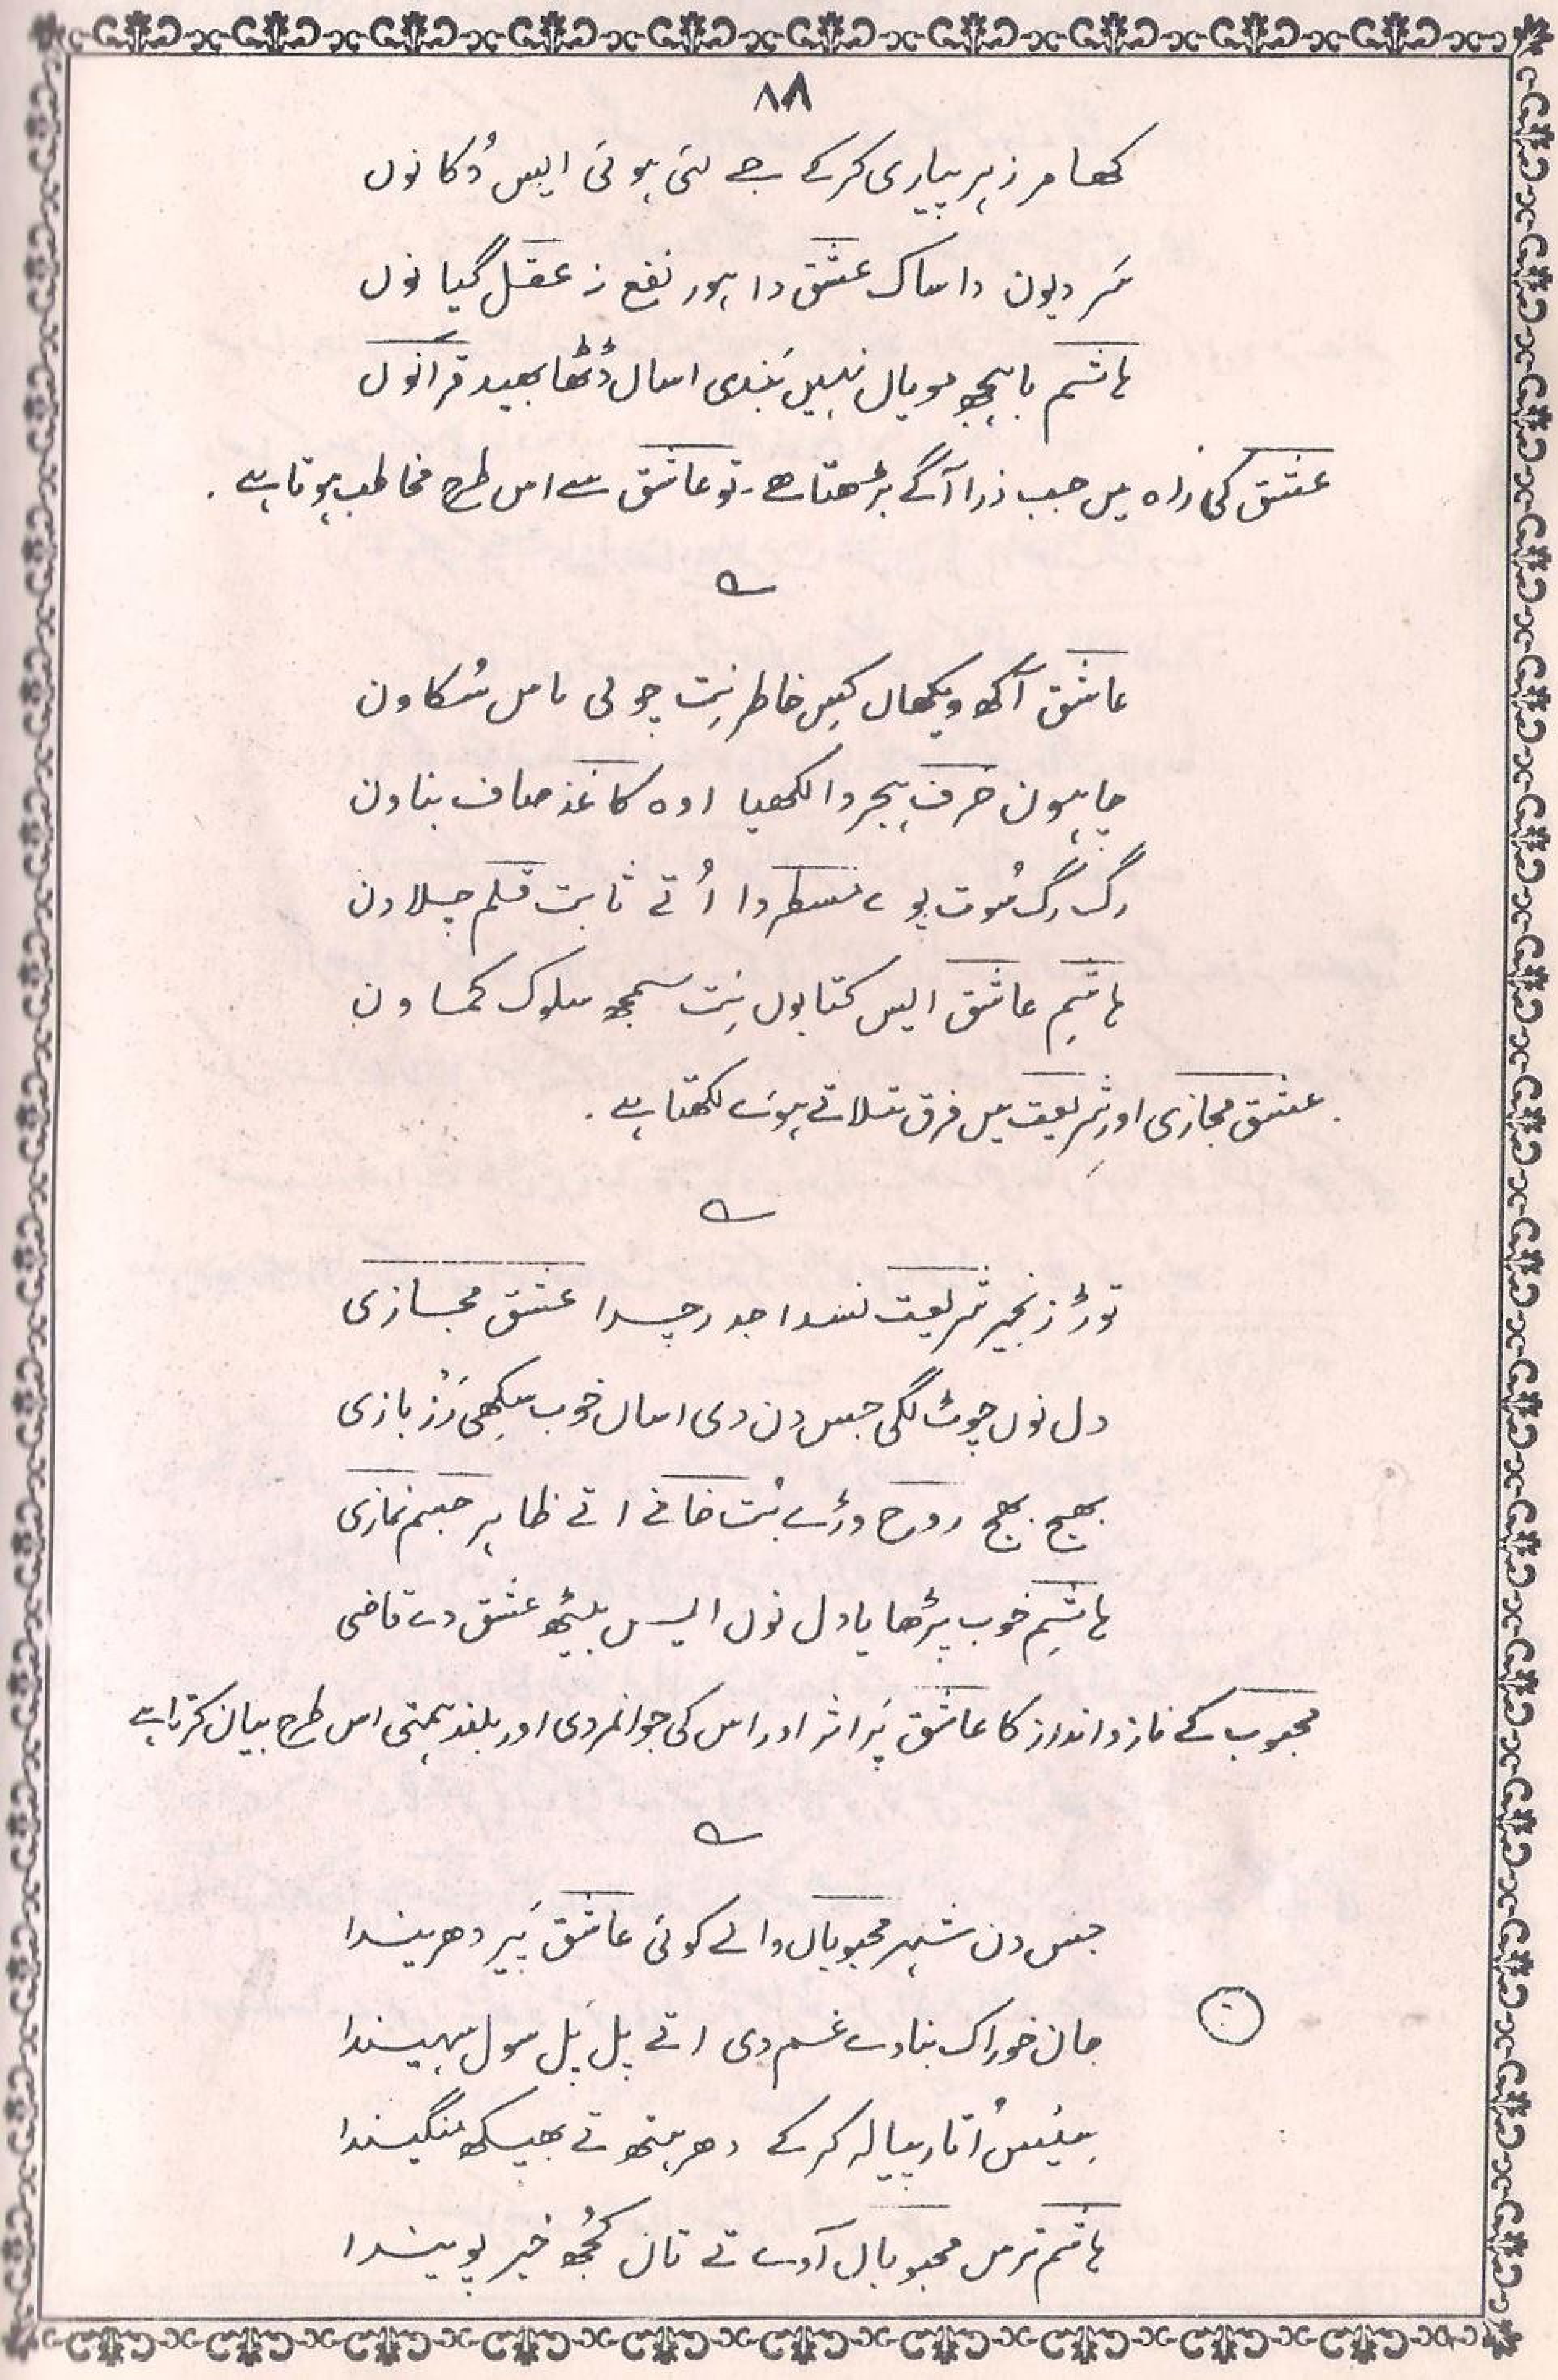 ۸۸
کھا مر زہر پیاری کرکے جے لئی ہوئی ایس دُکانوں
سَر دیون دا ساک عشق دا ہور نفع نہ عقل گیانوں
ہاشم باہجھ مویاں نہیں بَندی اساں ڈُٹھا بھید قرآنوں
عشق کی راہ میں جب ذرا آگے بڑھتا ہے۔ تو عاشق سے اس طرح مخاطب ہوتا ہے ۔
عاشق آکھ ویکھاں کیس خاطر نِت چولی ماس سُکاون
چاہون حرف ہجر دا لکھیا اوہ کاغذ صاف بناون
رگ رگ سُوت پوے مسطر دا اُتے ثابت قلم چلاون
ہاشِم عاشق ایس کتابوں نِت سمجھ سلوک کماون
عشق مجازی اور شریعت میں فرق بتلاتے ہوئے لکھتا ہے ۔
توڑ زنجیر شریعت نسدا جد رچدا عشق مجازی
دل نوں چوٹ لگی جس دن دی اساں خوب سِکھی رَڑ بازی
بھج بھج روح وڑے بُت خانے اتے ظاہر جسم نمازی
ہاشِم خوب پڑھایا دل نوں ایس بیٹھ عشق دے قاضی
محبوب کے ناز و انداز کا عاشق پَر اثر اور اس کی جوانمردی اور بلند ہمتی اس طرح بیان کرتا ہے
جس دن شہر محبوباں والے کوئی عاشق پَیر دھریندا
جان خوراک بناوے غم دی اتے پل پَل سول سہیندا
سِیس اُتار پیالہ کرکے دھر ہتھ تے بھیکھ منگیندا
ہاشم ترس محبوباں آوے تے تاں کُجھ خیر پویندا